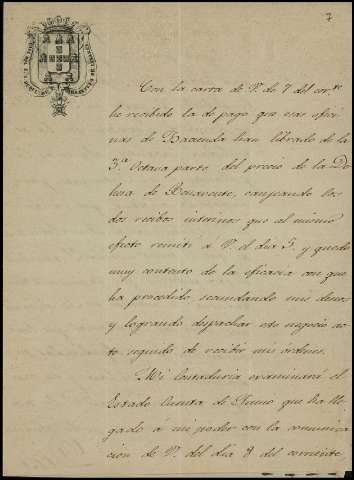 7
Con la carta de V. de 7 del corr.te
he recibido la de pago que esas ofici
nas de Hacienda han librado de la
3.ª Octava parte del precio de la De
hesa de Benavente, canjeando los
dos recibos interinos que al mismo
efecto remití á V. el dia 5. y quedo
muy contento de la eficacia con que
ha procedido, secundando mis deseos
y logrando despachar este negocio ac
to seguido de recibir mis órdenes.
Mi Contaduría examinará el
Estado Cuenta de Fruno que ha lle
gado á mi poder con la comunica
cion de V. del dia 8 del corriente,